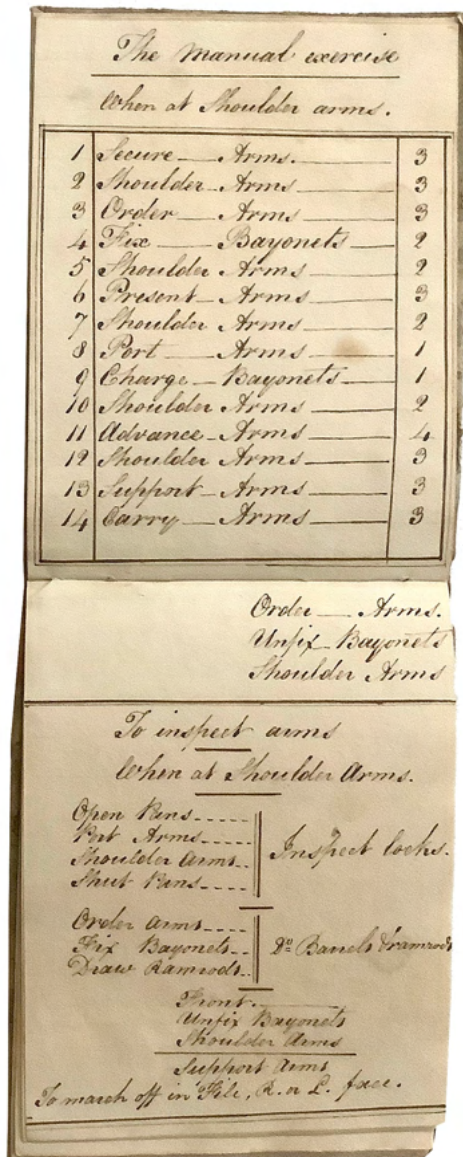 The manual exercise
When at Shoulder arms.
1 Secure Arms. 3
2 Shoulder Arms 3
3 Order Arms 3
4 Fix Bayonets 2
5 Shoulder Arms 2
6 Present Arms 3
7 Shoulder Arms 2
8 Port Arms 1
9 Charge Bayonets 1
10 Shoulder Arms 2
11 Advance Arms 4
12 Shoulder Arms 3
13 Support Arms 3
14 Carry Arms 3
Order Arms.
Unfix Bayonets
Shoulder Arms
To inspect arms
When at Shoulder Arms.
Open Pans
Port Arms
Shoulder Arms
Shut Pans
Inspect locks.
Order Arms
Fix Bayonets
Draw Ramrods
Do Barrels & ramrods
Front.
Unfix Bayonets
Shoulder Arms
Support Arms
To march off in File, R. or L. face.